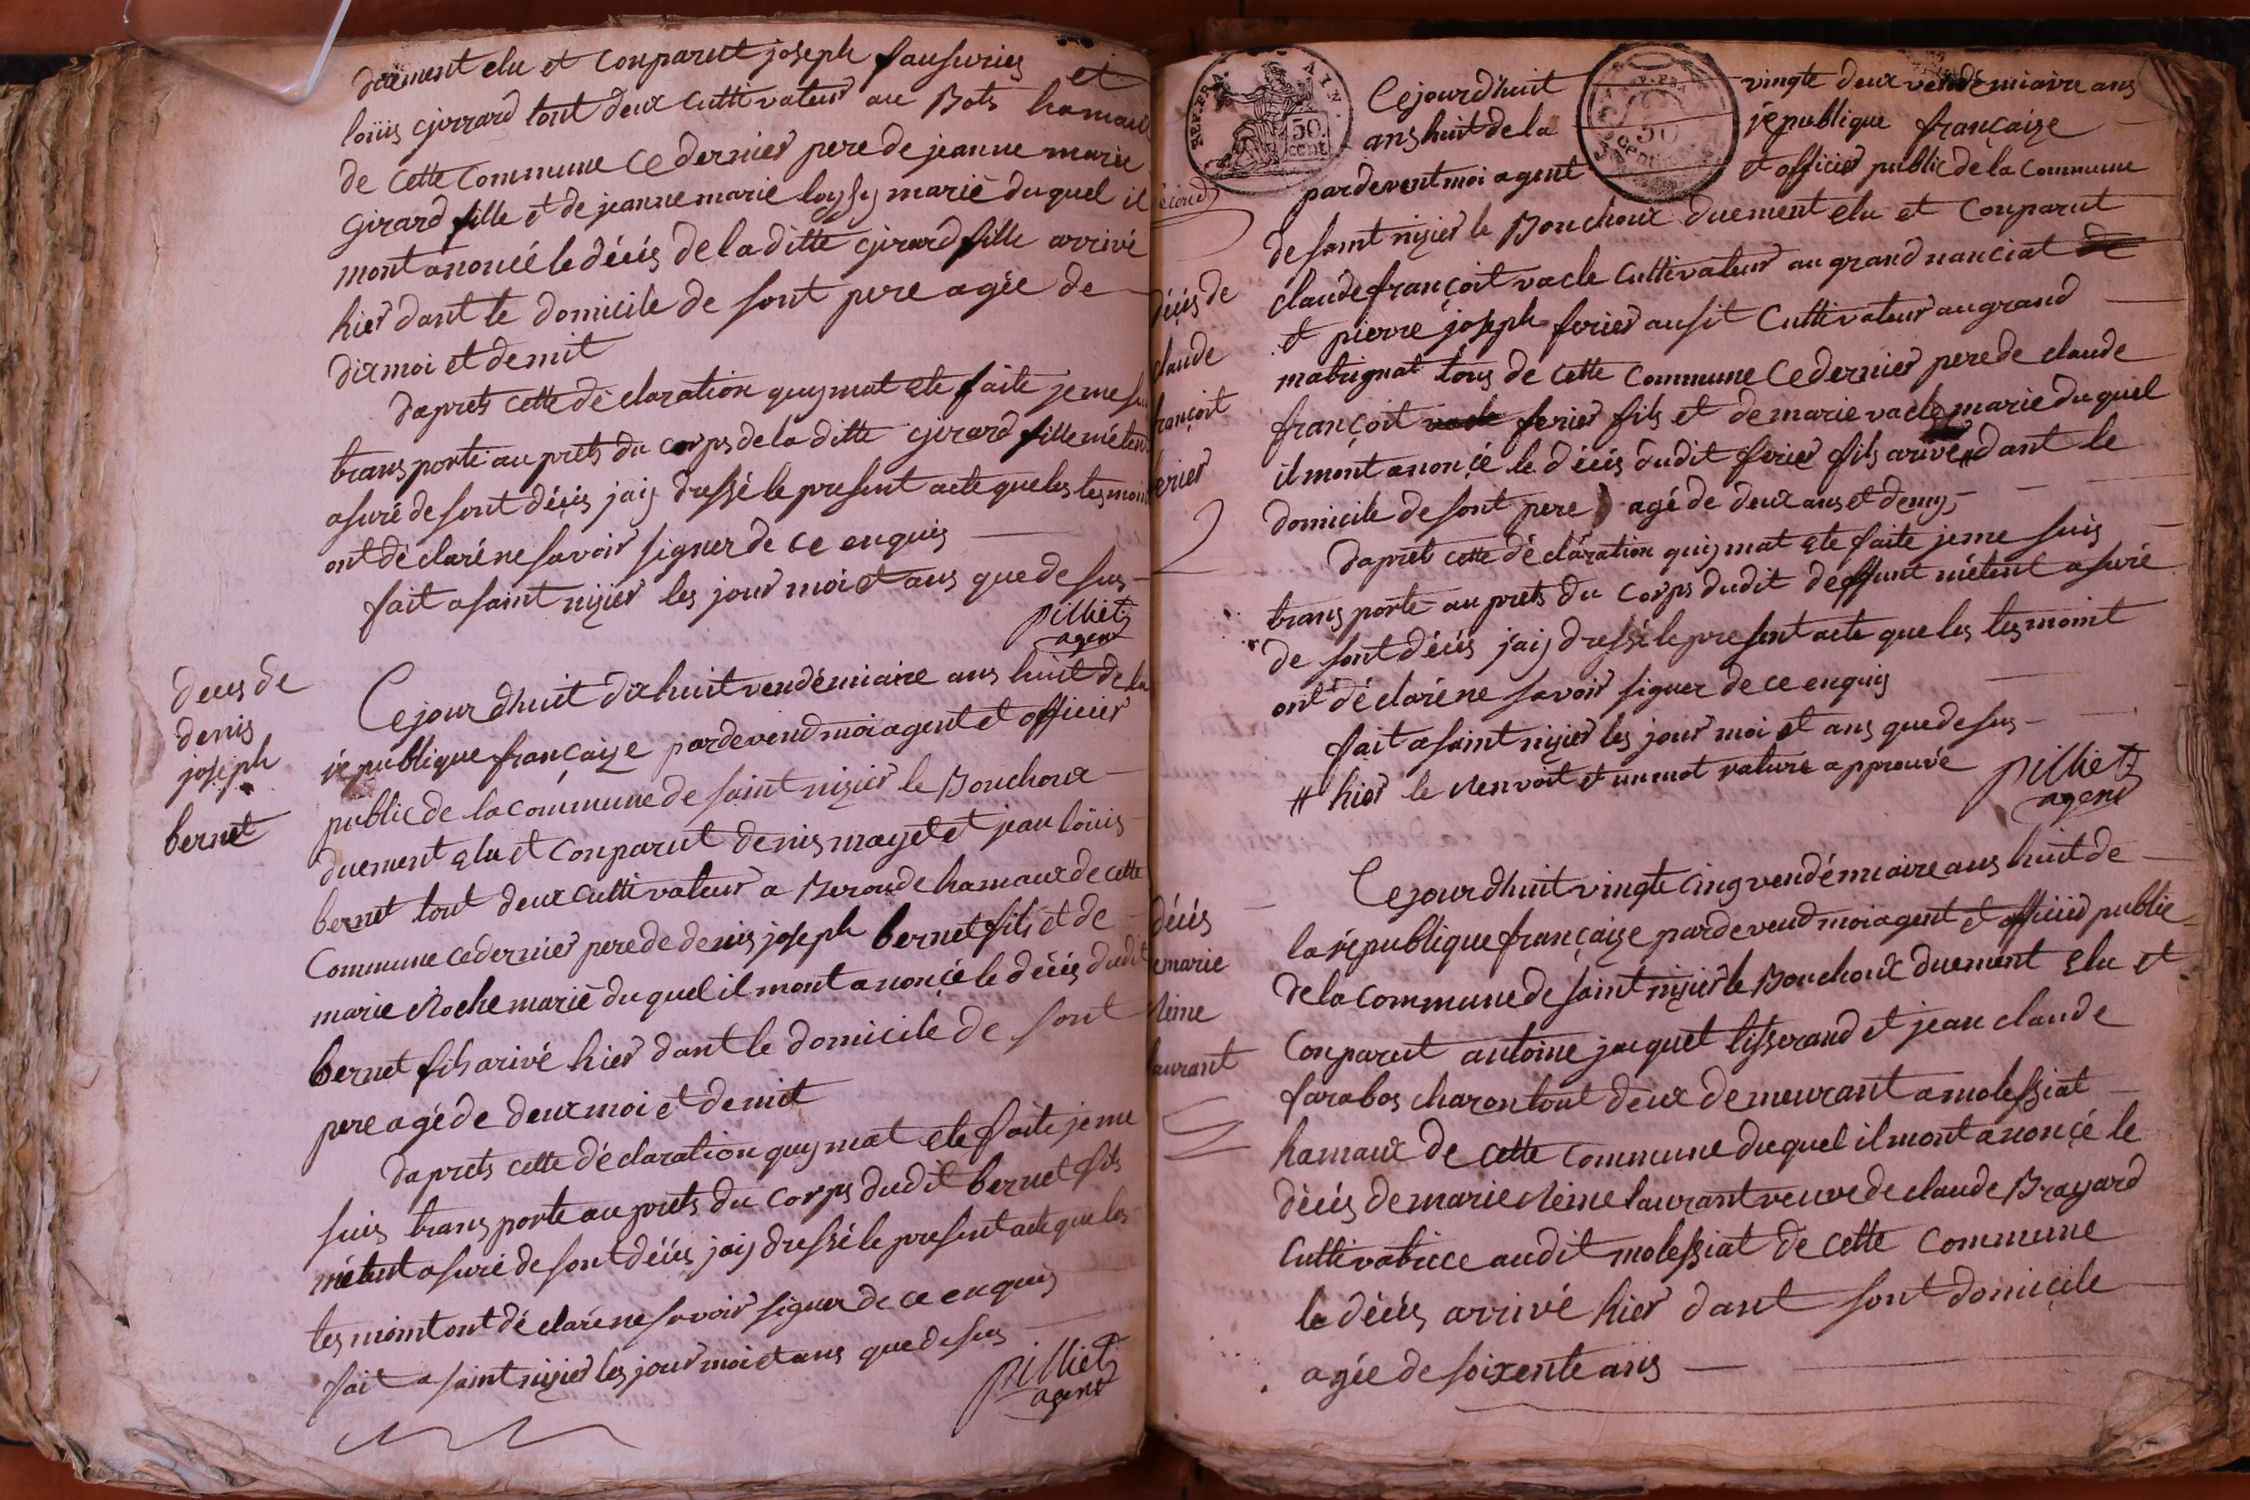 duement elu et Conparut joseph fausuries et
loüis Gjrrard tout deux Cultivateur au Bots hamaux
de Cette Commune Cedernier pere de jeanne marie
girard fille et de jeanne marie marié duquel il
mont anoncé le décés de la ditte girard fille arrivé
hier dant le domicile de sont pere agée de
dix moi et demit
daprets cette déclaration quymat ete faite jeme suis
transporté au prets du corps de la ditte girard fille métent
asuré de sont décés jaij dressé le present acte queles tesmoint
ont déclaré ne savoir signer de ce enquis
fait a saint nizier les jour moi et ans que desus
pilliet
agent
deces de
denis
joseph
bernet
Cejourdhuit dix huit vendémiaire ans huit de la
république françaize pardevend moi agent et officier
public de la commune de saint nizier le Bouchoux
duement elu et Conparut denis mayet et jean loüis
bernet tout deux Cultivateur a Beronde hamaux de cette
Commune cedernier pere de denis joseph bernet fils et de
marie Roche marié duquel il mont anoncé le décés dudit
bernet fils arivé hier dant le domicile de sont
pere agé de deux moi et demit
daprets cette déclaration quymat ete faite jeme
suis transporté au prets du corps dudit bernet fils
métent asuré de sont décés jaij dressé le present acte que les
tesmoint ont déclaré ne savoir signer de ce enquis
fait a saint nizier les jour moi et ans que desus
pilliet
agent
REP. FRA. AIN.
50.
cent.
Cejourdhuit vingte deux vendémiaire ans
ans huit de la république françaize
pardevent moi agent et officier public de la commune
de saint nizier le Bouchoux duement elu et Conparut
claude françoit vacle Cultivateur au grand nanciat de
et pierre joseph ferier ausit Cultivateur au grand
matrignat tous de cette Commune Cedernier pere de claude
françoit vacle ferier fils et de marie vacle marié duquel
il mont anoncé le décés dudit ferier fils arivé # dant le
domicile de sont pere agé de deux ans et demy
daprets cette déclaration quijmat ete faite jeme suis
transporte au prets du corps dudit deffunt métent asuré
de sont décés jaij dressé le present acte que les tesmoint
ont déclaré ne savoir signer de ce enquis
fait a saint nizier les jour moi et ans que desus
# hier le Renvoit et un mot raturé approuvé
pilliet
agent
décés de
claude
françoit
ferier
Cejourdhuit vingte cinq vendémiaire ans huit de
la république françaize pardevend moi agent et officier public
de la commune de saint nizier le Bouchoux duement elu et
Conparut antoine jacquet tisserand et jean claude
farabos charon tout deux demeurant a molessiat
hamaux de cette commune duquel il mont anoncé le
décés de marie Reine laurant veuve de claude Brayard
Cultivatrice audit molessiat de cette commune
le décés arrivé hier dant sont domicile
agée de soixente ans
décés
demarie
Reine
laurant